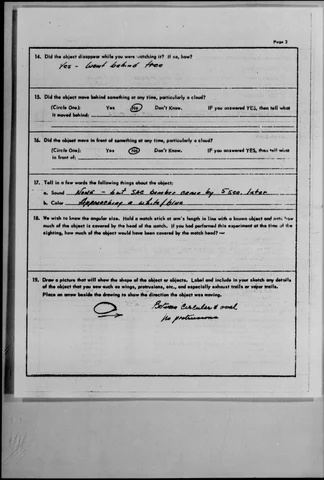 Page 3
14. Did the object disappear while you were watching it? If so, how?
Yes - Went behind tree
15. Did the object move behind something at any time, particularly a cloud?
(Circle One): Yes No Don't Know. IF you answered YES, then tell what
it moved behind:
16. Did the object move in front of something at any time, particularly a cloud?
(Circle One): Yes No Don't Know. IF you answered YES, then tell what
in front of:
17. Tell in a few words the following things about the object:
a. Sound None - but SAC bomber came by 5 sec. later
b. Color Approaching a white/blue
18. We wish to know the angular size. Hold a match stick at arm's length in line with a known object and note how
much of the object is covered by the head of the match. If you had performed this experiment at the time of the
sighting, how much of the object would have been covered by the match head?
19. Draw a picture that will show the shape of the object or objects. Label and include in your sketch any details
of the object that you saw such as wings, protrusions, etc., and especially exhaust trails or vapor trails.
Place an arrow beside the drawing to show the direction the object was moving.
Between circular & oval
no protrusions